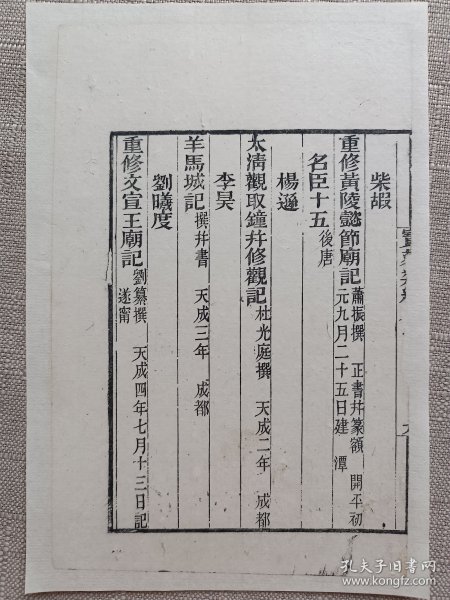 柴嘏
重修黃陵懿節廟記 蕭振撰 正書幷篆額 開平初
元九月二十五日建 潭
名臣十五 後唐
楊遜
太淸觀取鐘幷修觀記 杜光庭撰 天成二年 成都
李昊
羊馬城記 撰幷書 天成三年 成都
劉曦度
重修文宣王廟記 劉纂撰 天成四年七月十三日記
遂甯
孔夫子旧书网
www.kongfz.com